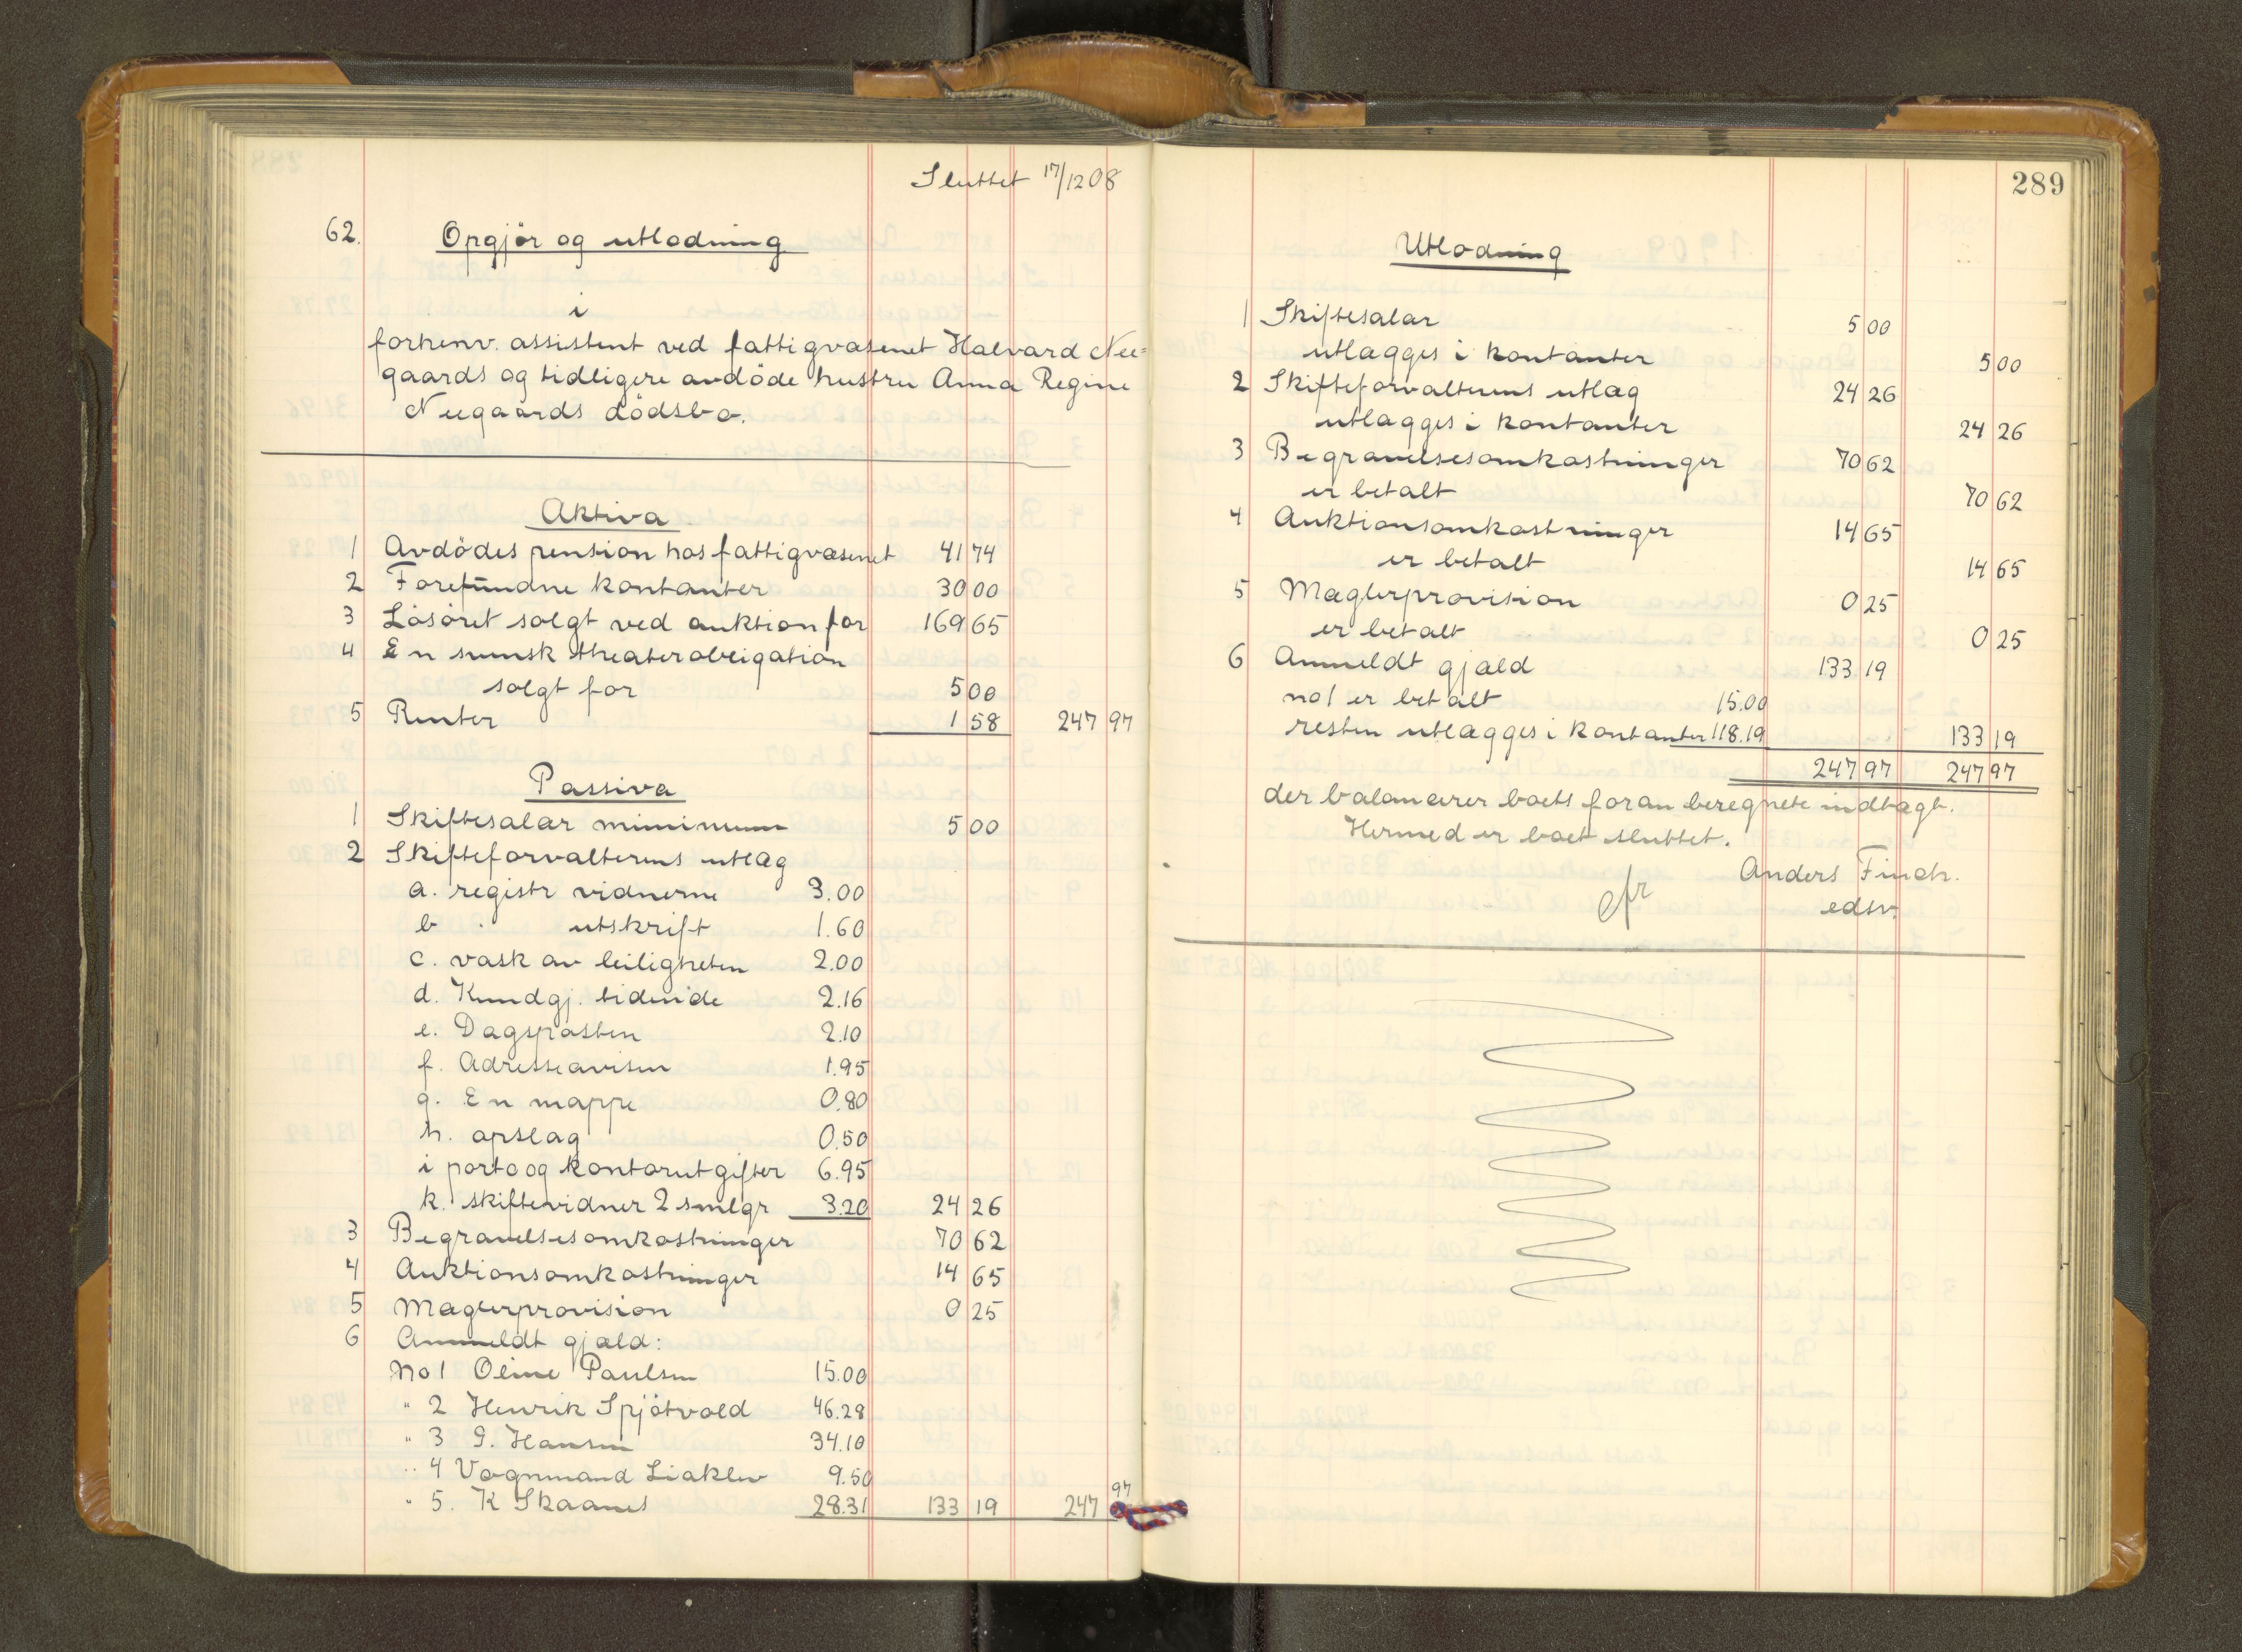 Sluttet 17/12 08
62. Opgjör og utlodning
i
forhenv. assistent ved fattigvæsenet Halvard Nee=
gaards og tidligere avdöde hustru Anna Regine
Neegaards dödsbo.
Aktiva
1 Avdödes pension hos fattigvæsenet 41 74
2 Forefundne kontanter 30 00
3 Lösöret solgt ved auktion for 169 65
4 En svensk theaterobligation
solgt for 5 00
5 Renter 1 58 247 97
Passiva
1 Skiftesalær minimum 5 00
2 Skifteforvalterens utlæg
a. registr vidnerne 3.00
b " utskrift 1.60
c. vask av leiligheten 2.00
d. Kundgj. tidende 2.16
e. Dagsposten 2.10
f. Adresseavisen 1.95
g. En mappe 0.80
h. opslag 0.50
i porto og kontorutgifter 6.95
k. skiftevidner 2 smlgr 3.20 24 26
3 Begravelsesomkostninger 70 62
4 Auktionsomkostninger 14 65
5 Mæglerprovision 0 25
6 Anmeldt gjæld:
No 1 Oline Paulsen 15.00
" 2 Henrik Spjötvold 46.28
" 3 G. Hansen 34.10
" 4 Vognmand Liaklev 9.50
" 5. K Skaanes 28.31 133 19 247 97
289
Utlodning
1 Skiftesalær 5 00
utlægges i kontanter 5 00
2 Skifteforvalterens utlæg 24 26
utlægges i kontanter 24 26
3 Begravelsesomkostninger 70 62
er betalt 70 62
4 Auktionsomkostninger 14 65
er betalt 14 65
5 Mæglerprovision 0 25
er betalt 0 25
6 Anmeldt gjæld 133 19
no 1 er betalt 15.00
resten utlægges i kontanter 118.19 133 19
247 97 247 97
der balancerer boets foran beregnete indtægt.
Hermed er boet sluttet.
Anders Finch.
edsv.
cfr